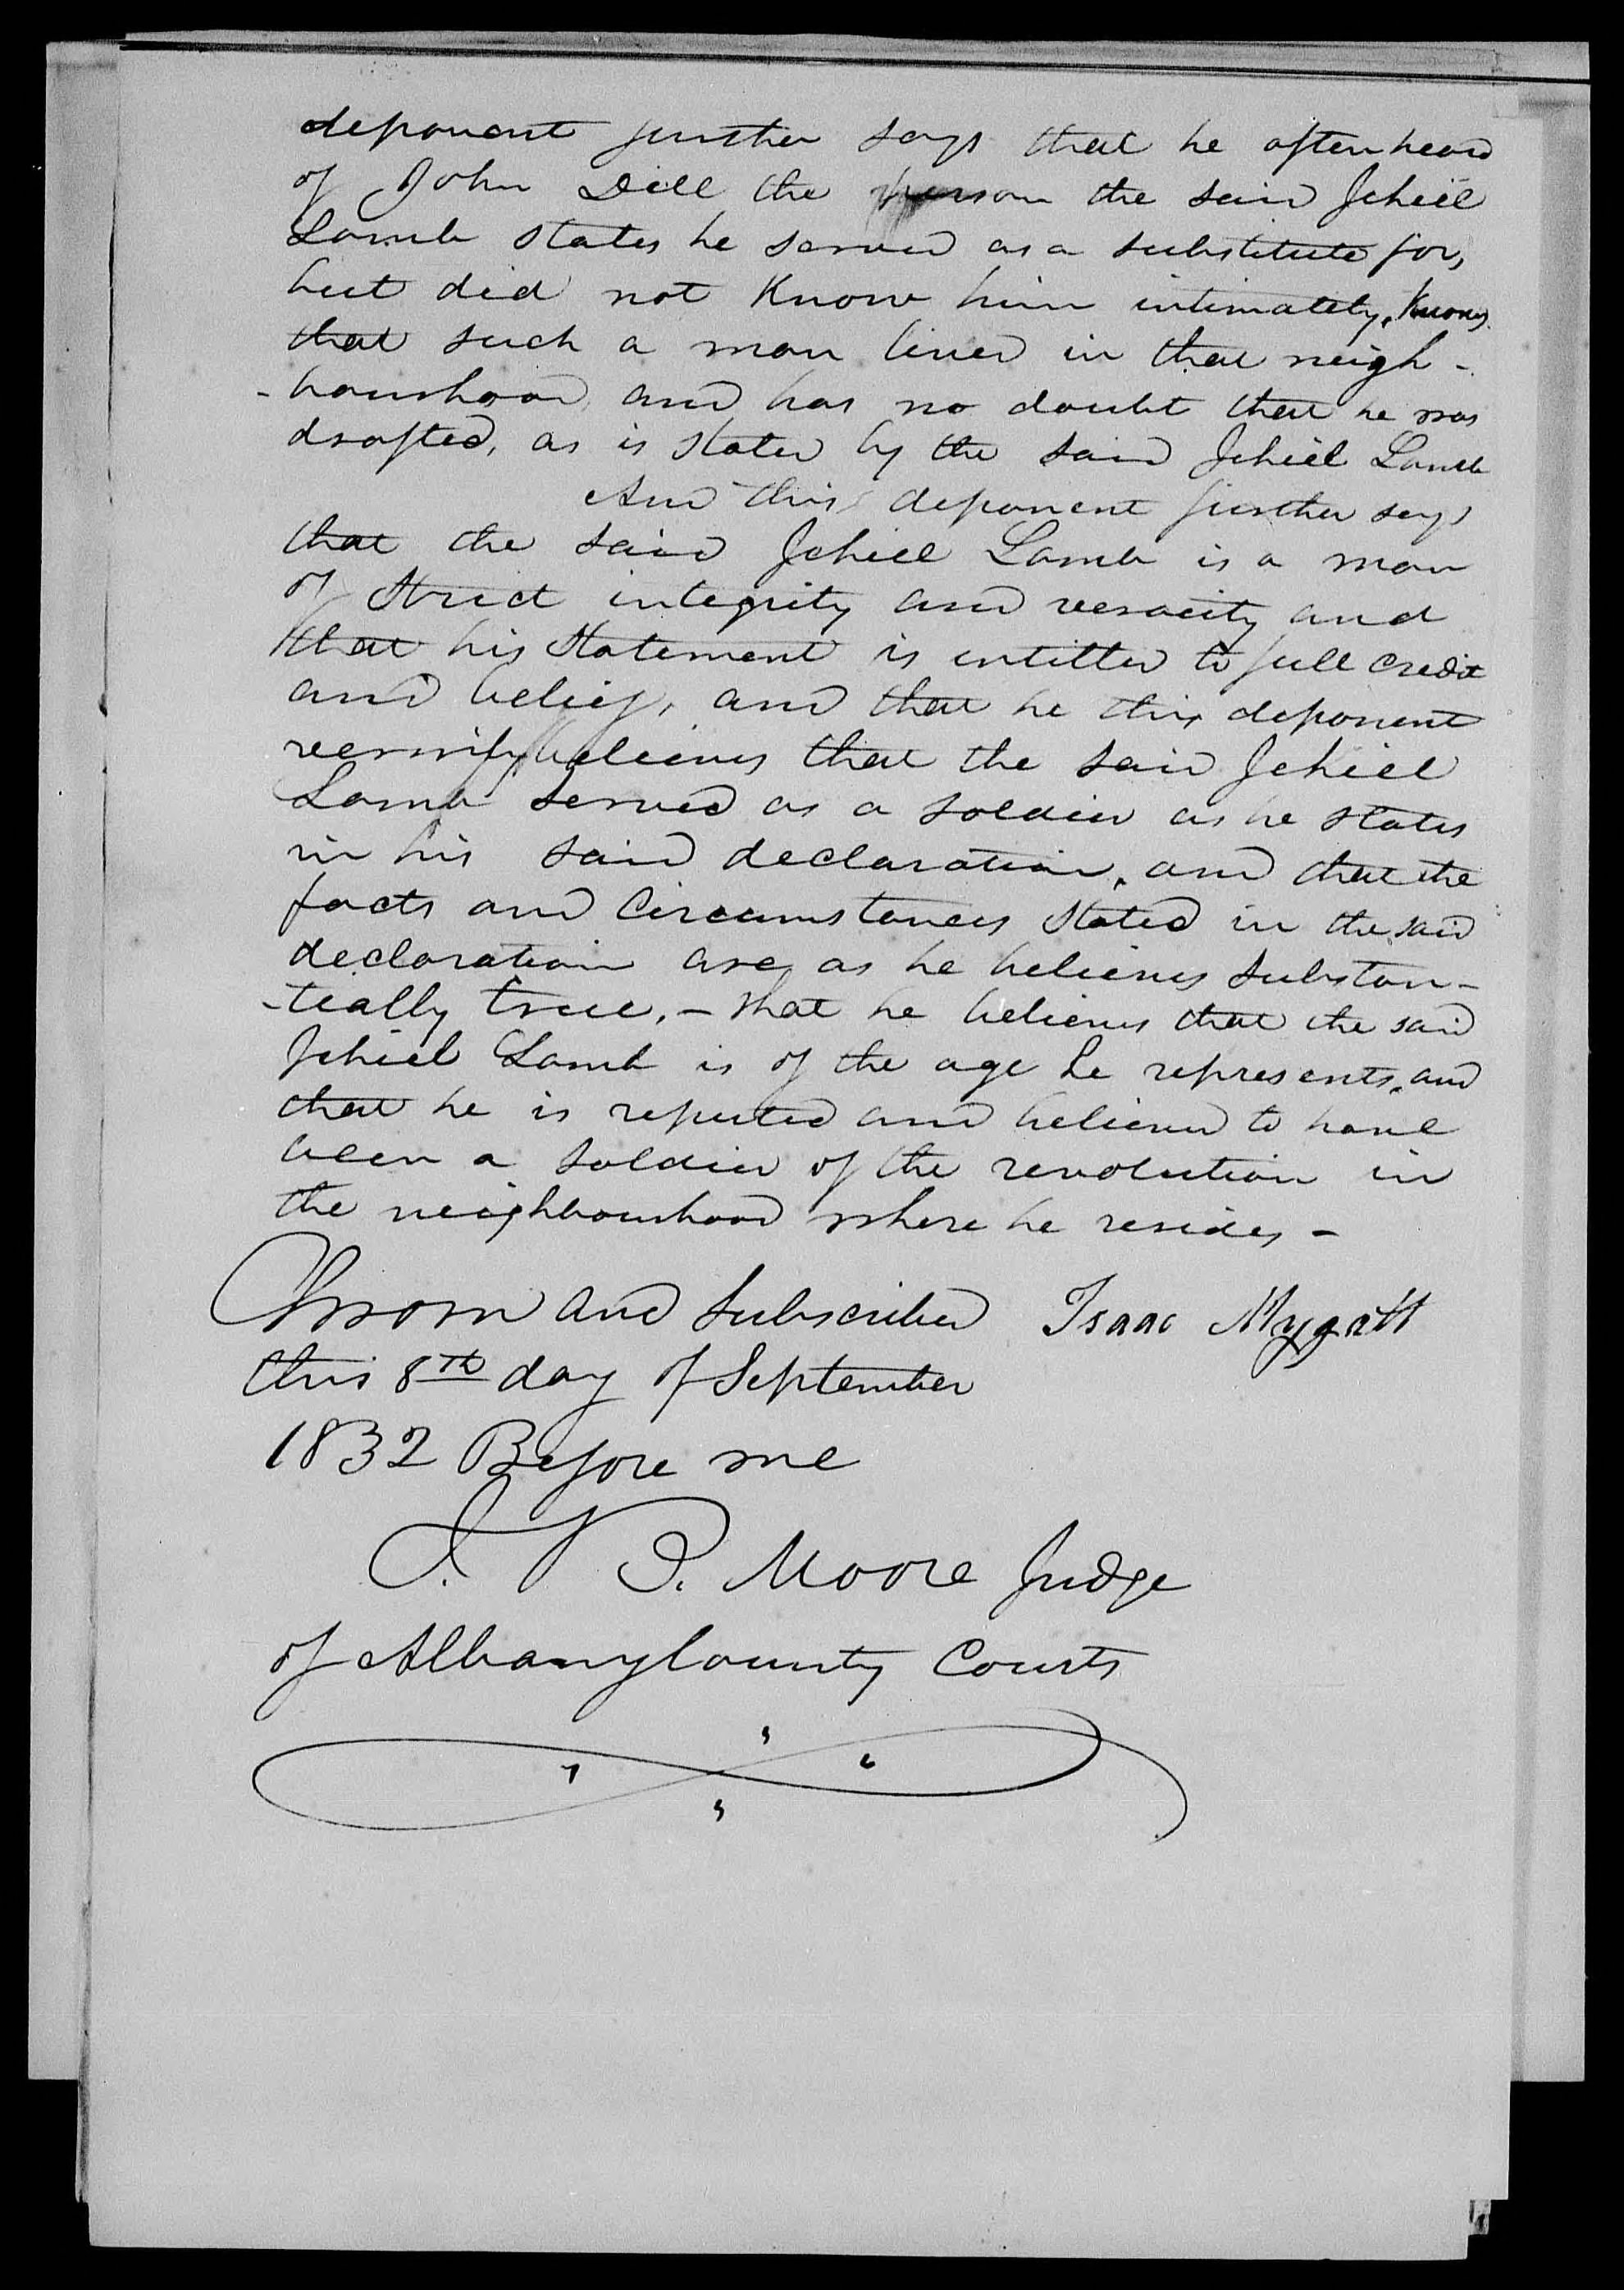 deponent further says that he often heard
of John Dill the person the said Jehiel
Lamb states he served as a substitute for,
but did not Know him intimately, Knows
that such a man lived in that neigh-
-bourhood, and has no doubt that he was
drafted, as is stated by the said Jehiel Lamb
And this deponent further says
that the said Jehiel Lamb is a man
of Strict integrity and veracity and
that his Statement is intitled to full credit
and belief, and that he this deponent
verrify believes that the said Jehiel
Lamb served as a soldier as he states
in his said declaration, and that the
facts and Circumstances Stated in the said
declaration are, as he believes substan-
-tially true, - that he believes that the said
Jehiel Lamb is of the age he represents, and
that he is reputed and believed to have
been a soldier of the revolution in
the neighbourhood where he resides -
Sworn and Subscribed Isaac Mygatt
this 8th day of September
1832 Before me
J. P. Moore Judge
of Albany County Courts